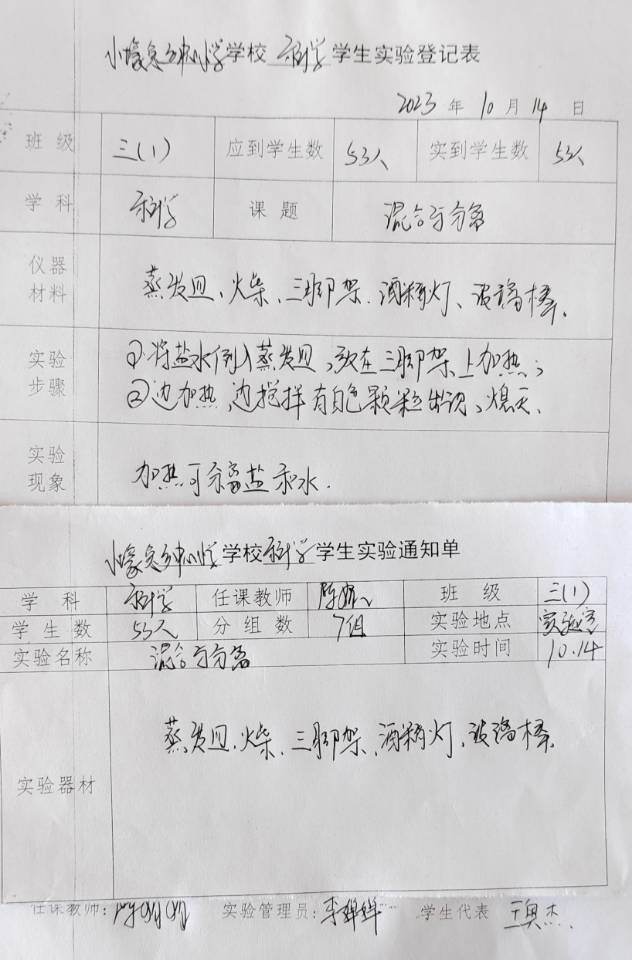 小濠中心小学学校 科学 学生实验登记表
2023 年 10 月 14 日
班级 三(1) 应到学生数 53人 实到学生数 53人
学科 科学 课题 混合与分离
仪器材料 蒸发皿、火柴、三脚架、酒精灯、玻璃棒.
实验步骤 ①将盐水倒入蒸发皿,放在三脚架上加热;
②边加热,边搅拌有白色颗粒出现、熄灭.
实验现象 加热可分离盐和水.
学校科学学生实验通知单
学科 科学 任课教师 班级 三(1)
学生数 53人 分组数 7组 实验地点 实验室
实验名称 混合与分离 实验时间 10.14
实验器材 蒸发皿.火柴、三脚架、酒精灯、玻璃棒.
任课教师: 实验管理员:李 学生代表 王奥杰